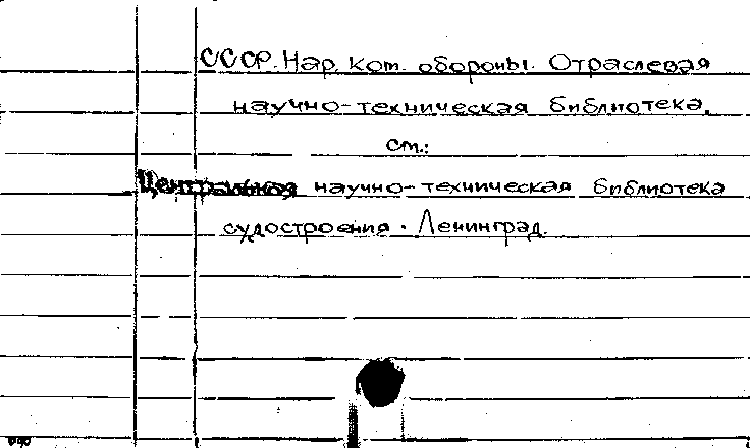 СССР. Нар. ком. обороны. Отраслевая
научно-техническая библиотека.
см.:
Центральная научно-техническая библиотека
судостроения. Ленинград.